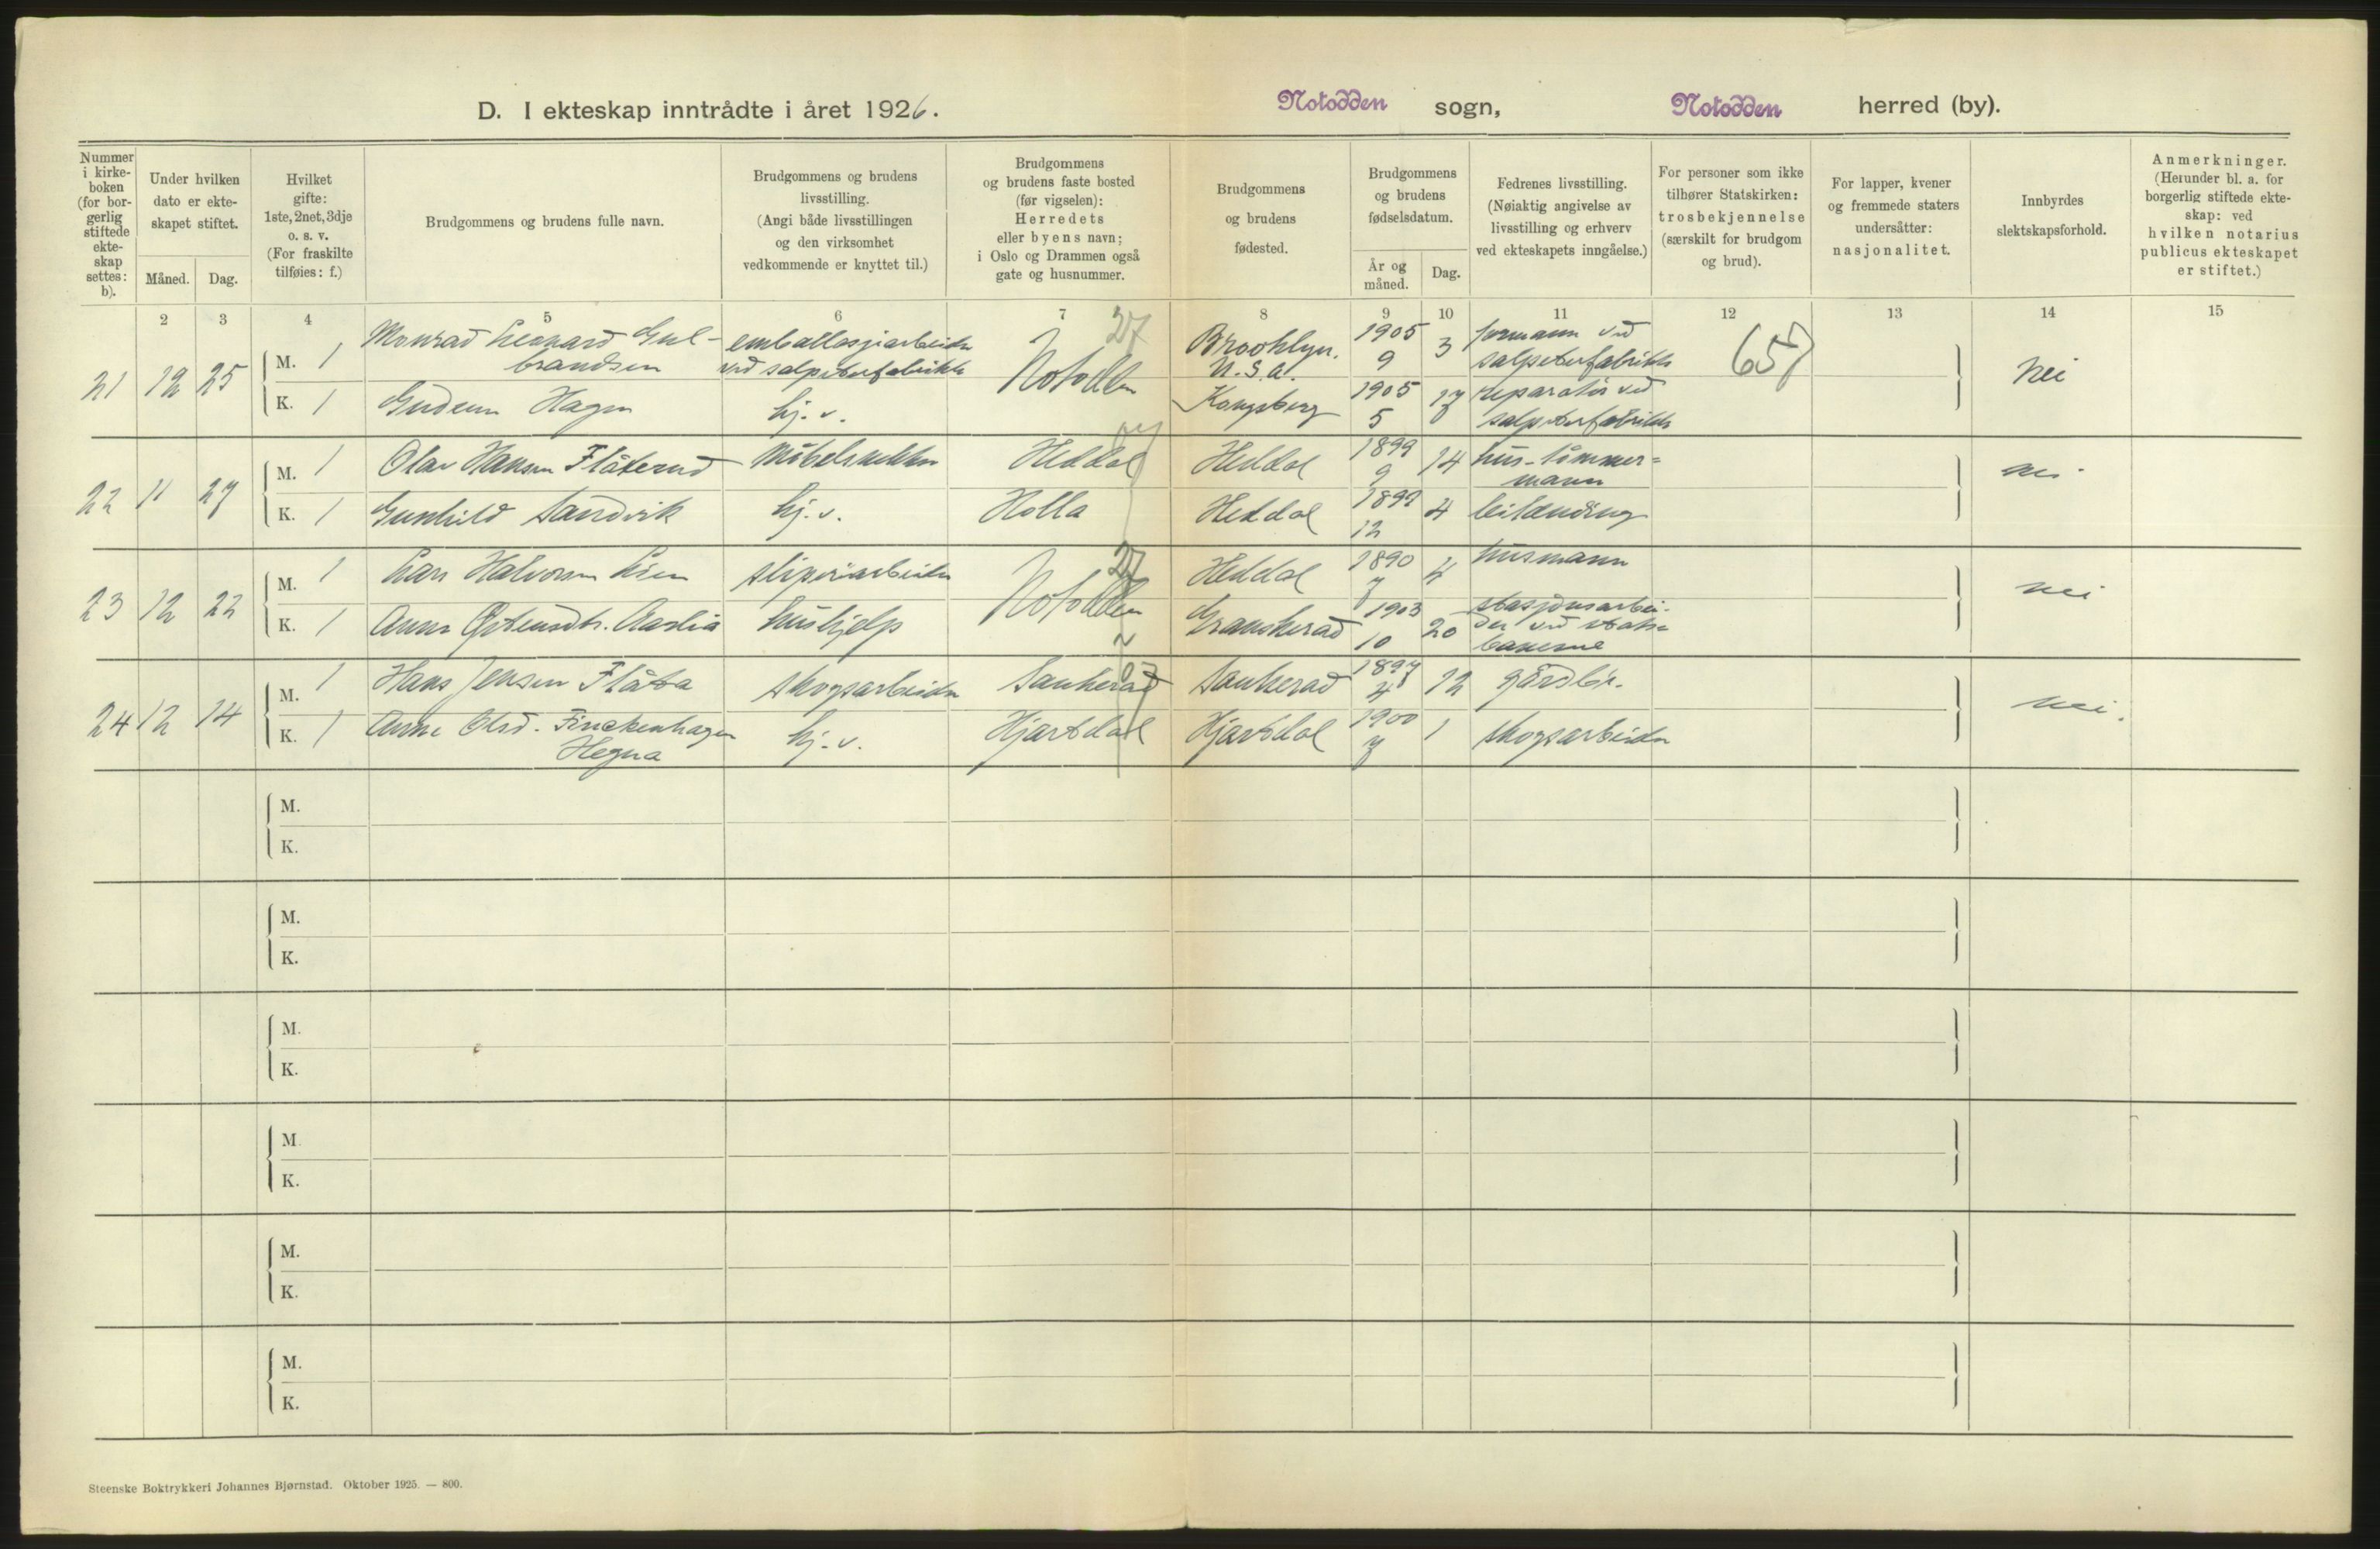 D. I ekteskap inntrådte i året 1926.
Notodden sogn, Notodden herred (by).
Nummer i kirke-boken (for bor-gerlig stiftede ekte-skap settes: b).
Under hvilken dato er ekte-skapet stiftet.
Måned. Dag.
Hvilket gifte: 1ste, 2net, 3dje o. s. v. (For fraskilte tilføies: f.)
Brudgommens og brudens fulle navn.
Brudgommens og brudens livsstilling. (Angi både livsstillingen og den virksomhet vedkommende er knyttet til.)
Brudgommens og brudens faste bosted (før vigselen): Herredets eller byens navn; i Oslo og Drammen også gate og husnummer.
Brudgommens og brudens fødested.
Brudgommens og brudens fødselsdatum.
År og måned. Dag.
Fedrenes livsstilling. (Nøiaktig angivelse av livsstilling og erhverv ved ekteskapets inngåelse.)
For personer som ikke tilhører Statskirken: trosbekjennelse (særskilt for brudgom og brud).
For lapper, kvener og fremmede staters undersåtter: nasjonalitet.
Innbyrdes slektskapsforhold.
Anmerkninger. (Herunder bl. a. for borgerlig stiftede ekte-skap: ved hvilken notarius publicus ekteskapet er stiftet.)
2 3 4 5 6 7 8 9 10 11 12 13 14 15
21 12 25 M. 1 Monrad Leonard Gul-brandsen emballasjearbeider ved salpeterfabrikk Notodden 27 Brooklyn. U.S.A. 1905 9 3 formann ved salpeterfabrikk 657 Nei
K. 1 Gudrun Hagen hj. v. Kongsberg 1905 5 17 reparatör ved salpeterfabrikk
22 11 27 M. 1 Olav Hansen Flåterud Möbelsnekker Heddal Heddal 1899 9 14 hus-tömmer=mann nei
K. 1 Gunhild Sandvik hj. v. Holla Heddal 1899 12 4 leilending
23 12 22 M. 1 Lars Halvorsen Lien sliperiarbeider Notodden 27 Heddal 1890 7 4 husmann nei
K. 1 Anna Aaslia hushjelp Gransherad 1903 10 20 stasjonsarbei-der ved stats=banerne
24 12 14 M. 1 Hans Jensen Flåta skogsarbeider Sauherad Sauherad 1897 4 12 gårdbr. nei.
K. 1 Anne Olsd. Finckenhagen Hegna hj. v. Hjartdal Hjartdal 1900 7 1 skogsarbeider
M.
K.
M.
K.
M.
K.
M.
K.
M.
K.
M.
K.
Steenske Boktrykkeri Johannes Bjørnstad. Oktober 1925. — 800.